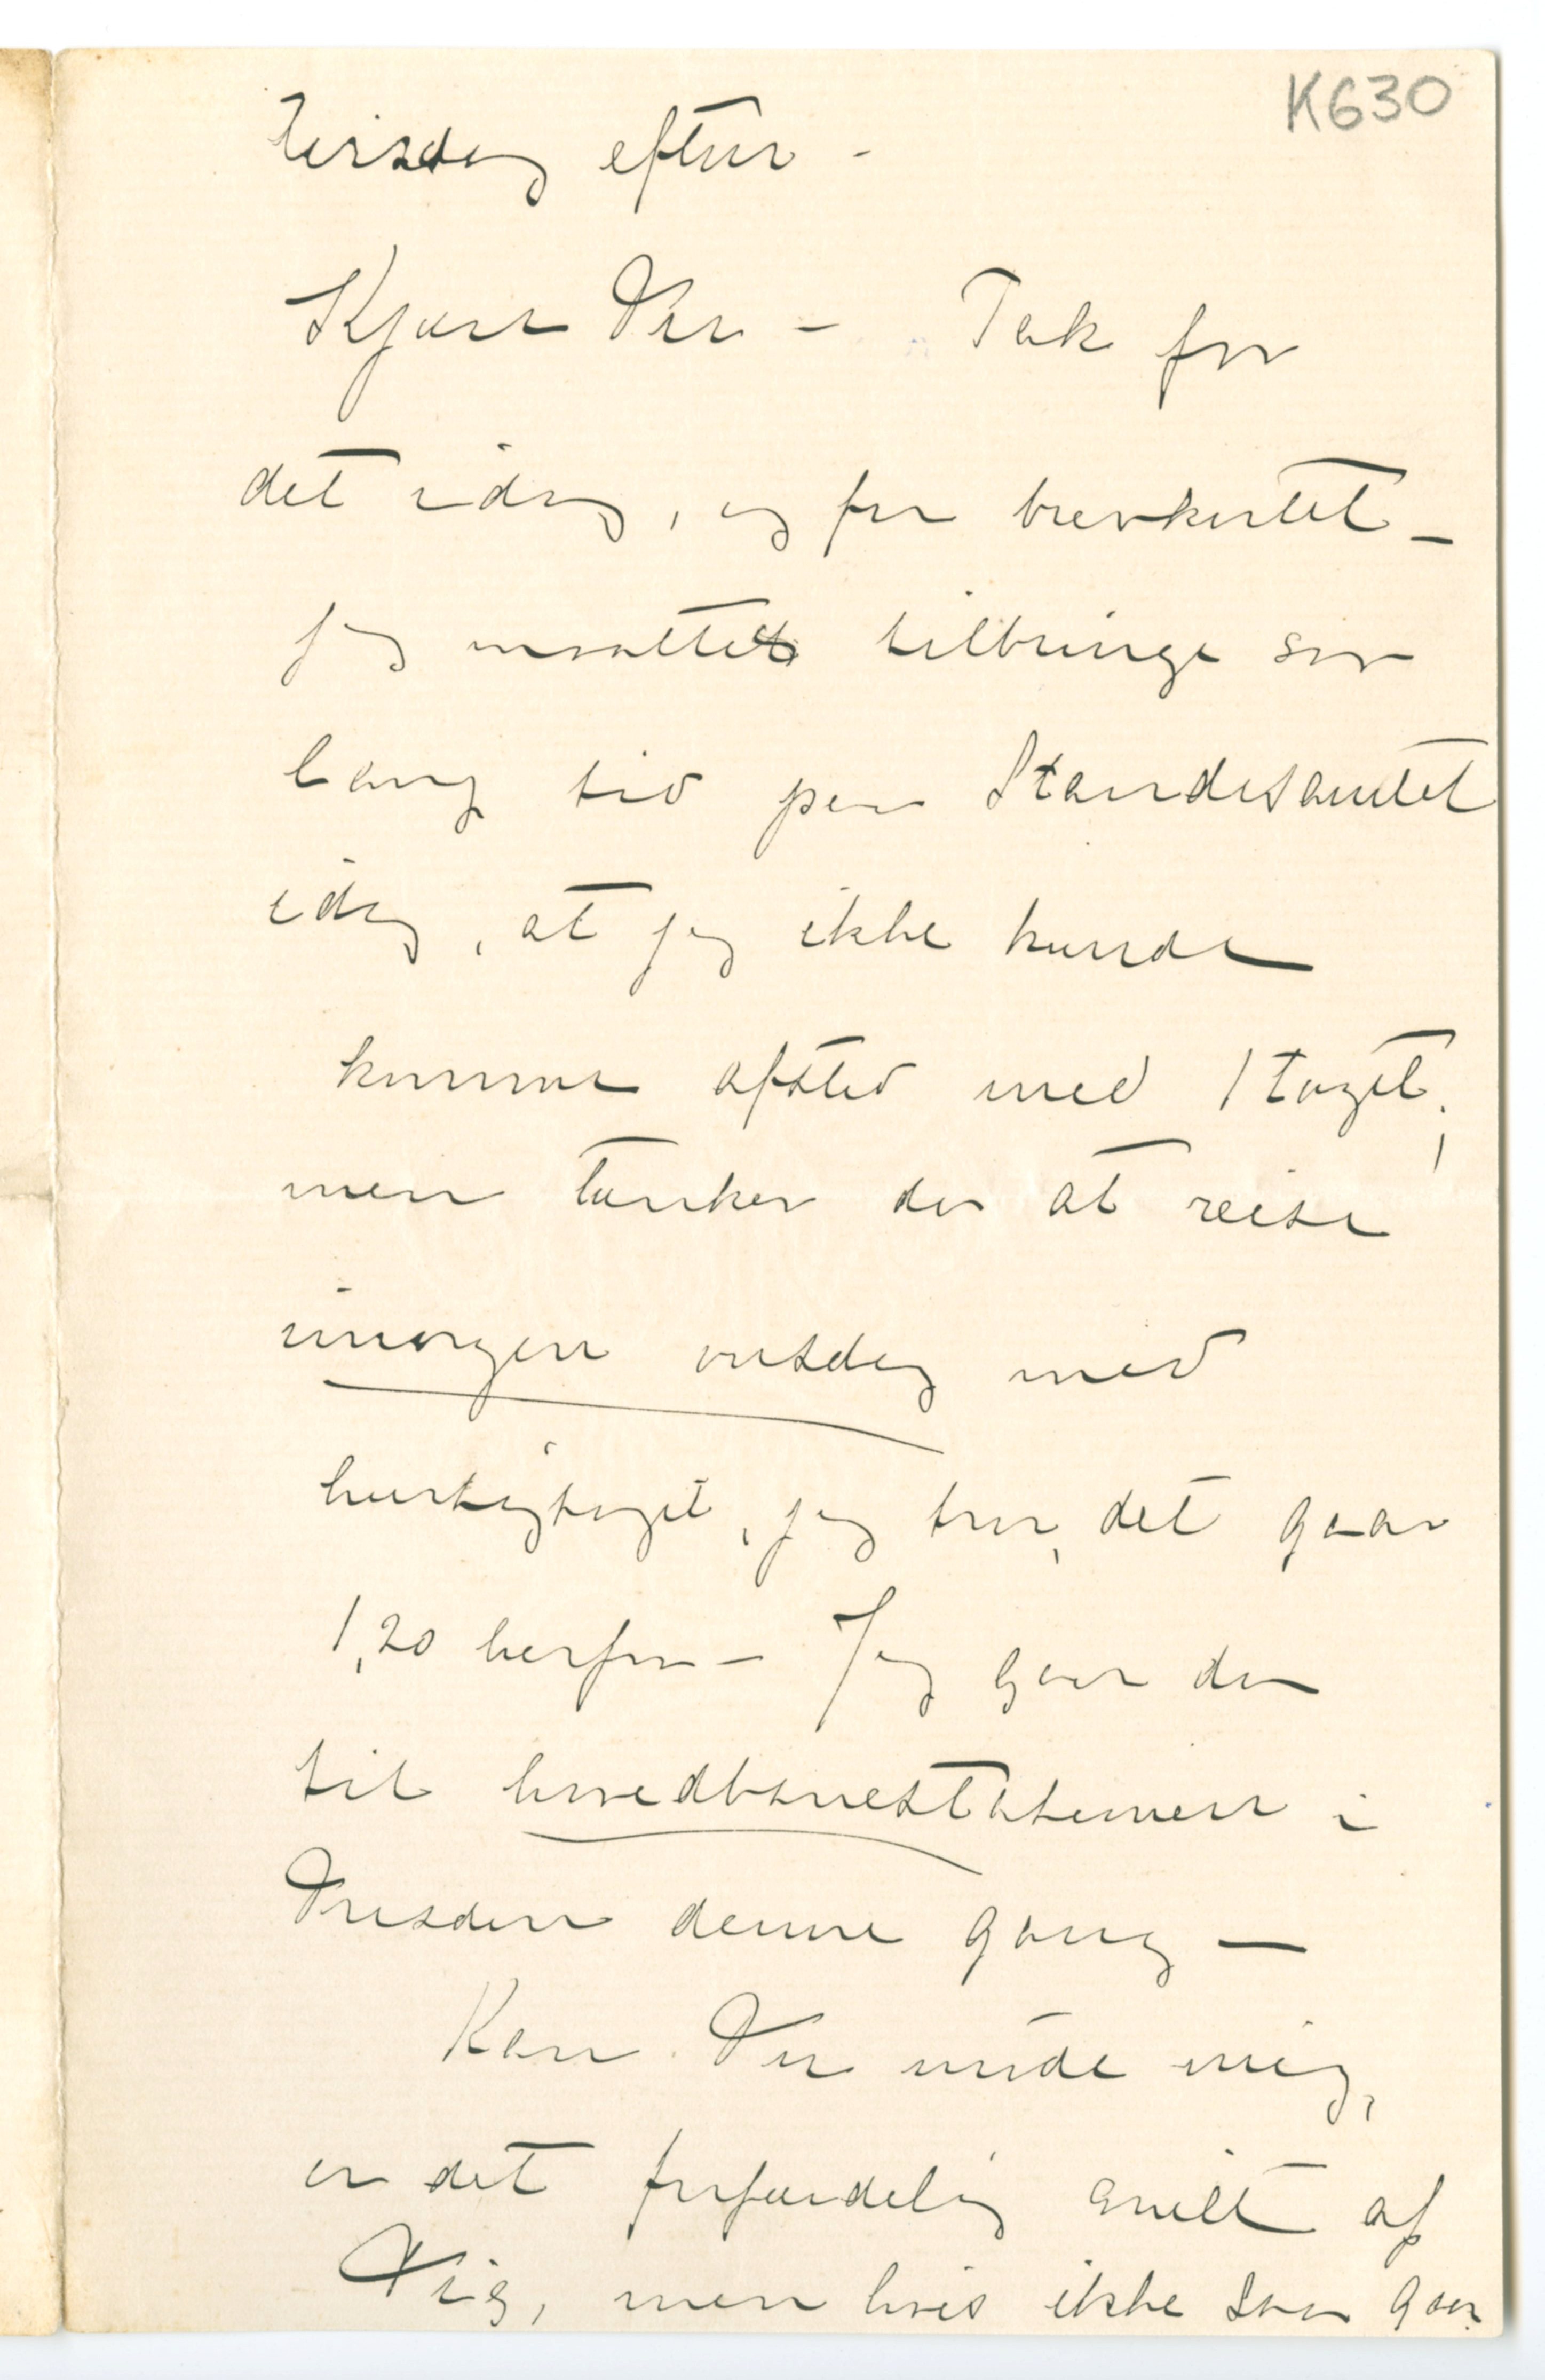 K630
tirsdag efter –
Kjære Du – Tak for
det idag, og for brevkortet –
Jeg maatte tilbringe saa
lang tid paa Standesamtet
idag, at jeg ikke kunde
komme afsted med 1 toget,
men tænker da at reise
imorgen onsdag med
hurtigtoget, jeg tror, det gaar
1,20 herfra – Jeg gaar da
til hovedbanestationen i
Dresden denne gang –
Kan Du møde mig,
er det forfærdelig snilt af
Dig, men hvis ikke saa gaar